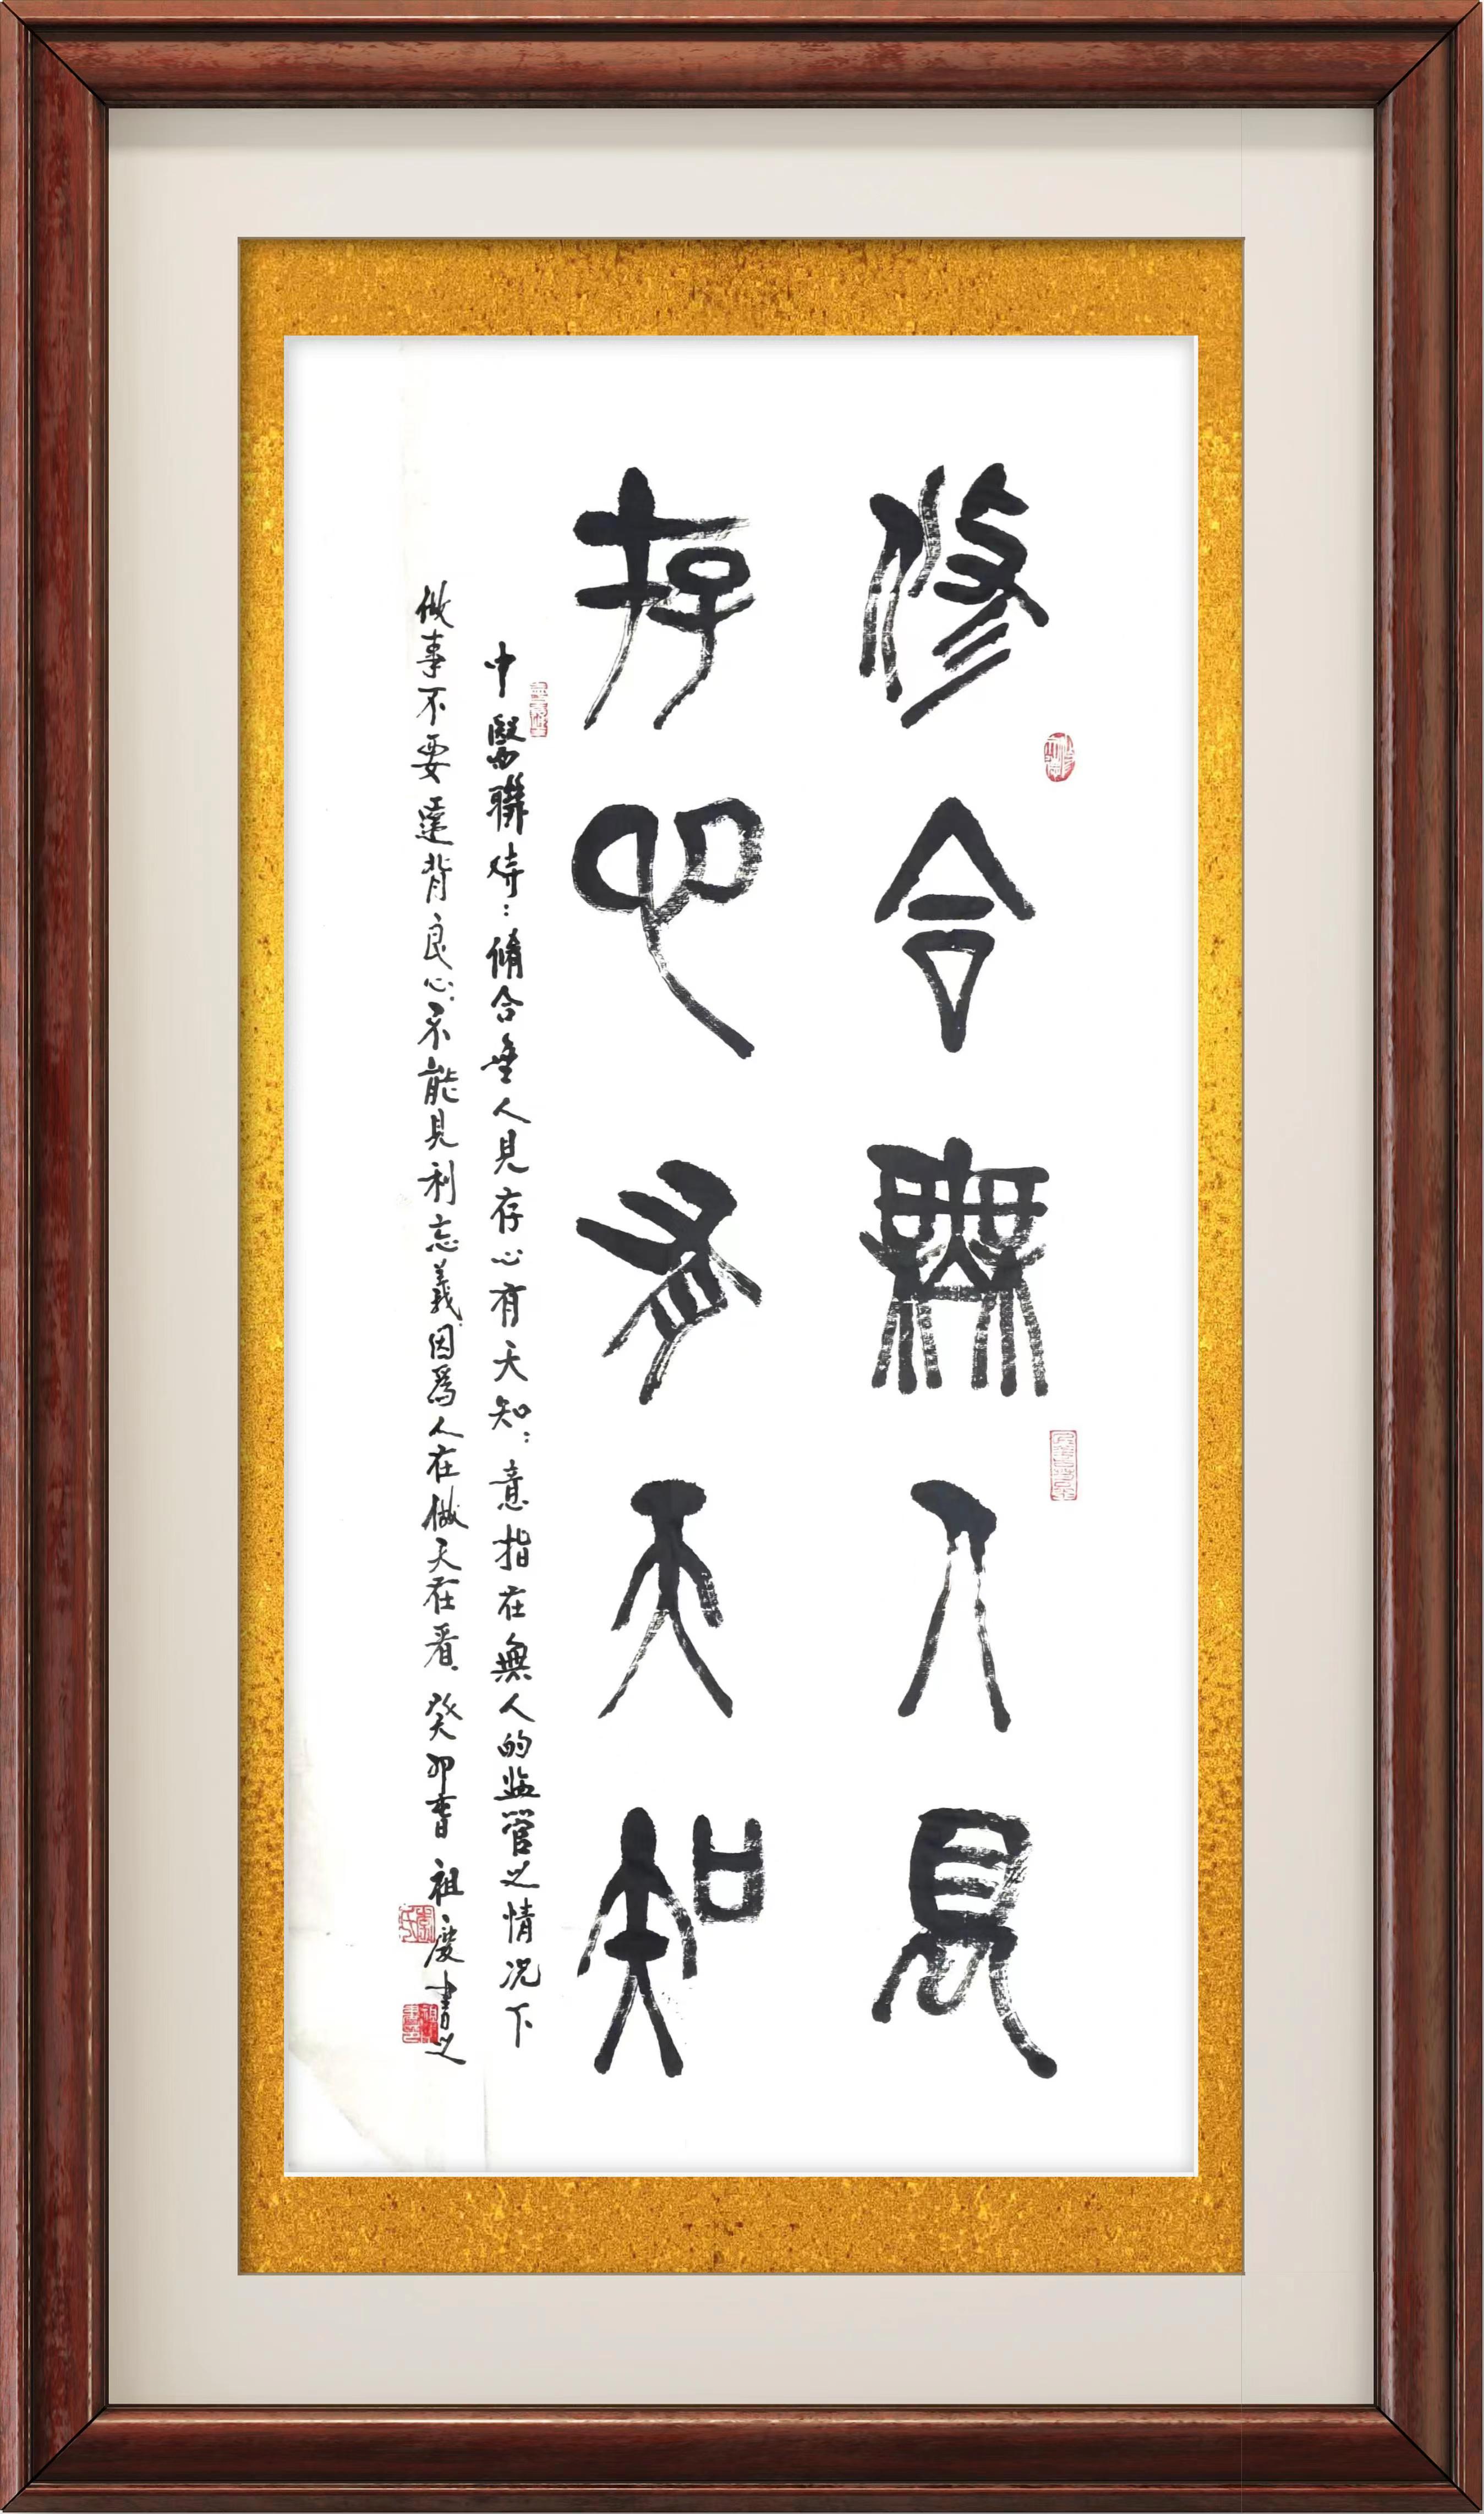 修合無人見
存心有天知
中醫聯對：脩合無人見存心有天知：意指在無人的监管之情况下
做事不要違背良心.不能見利忘義.因爲人在做天在看.癸卯春祖慶書之